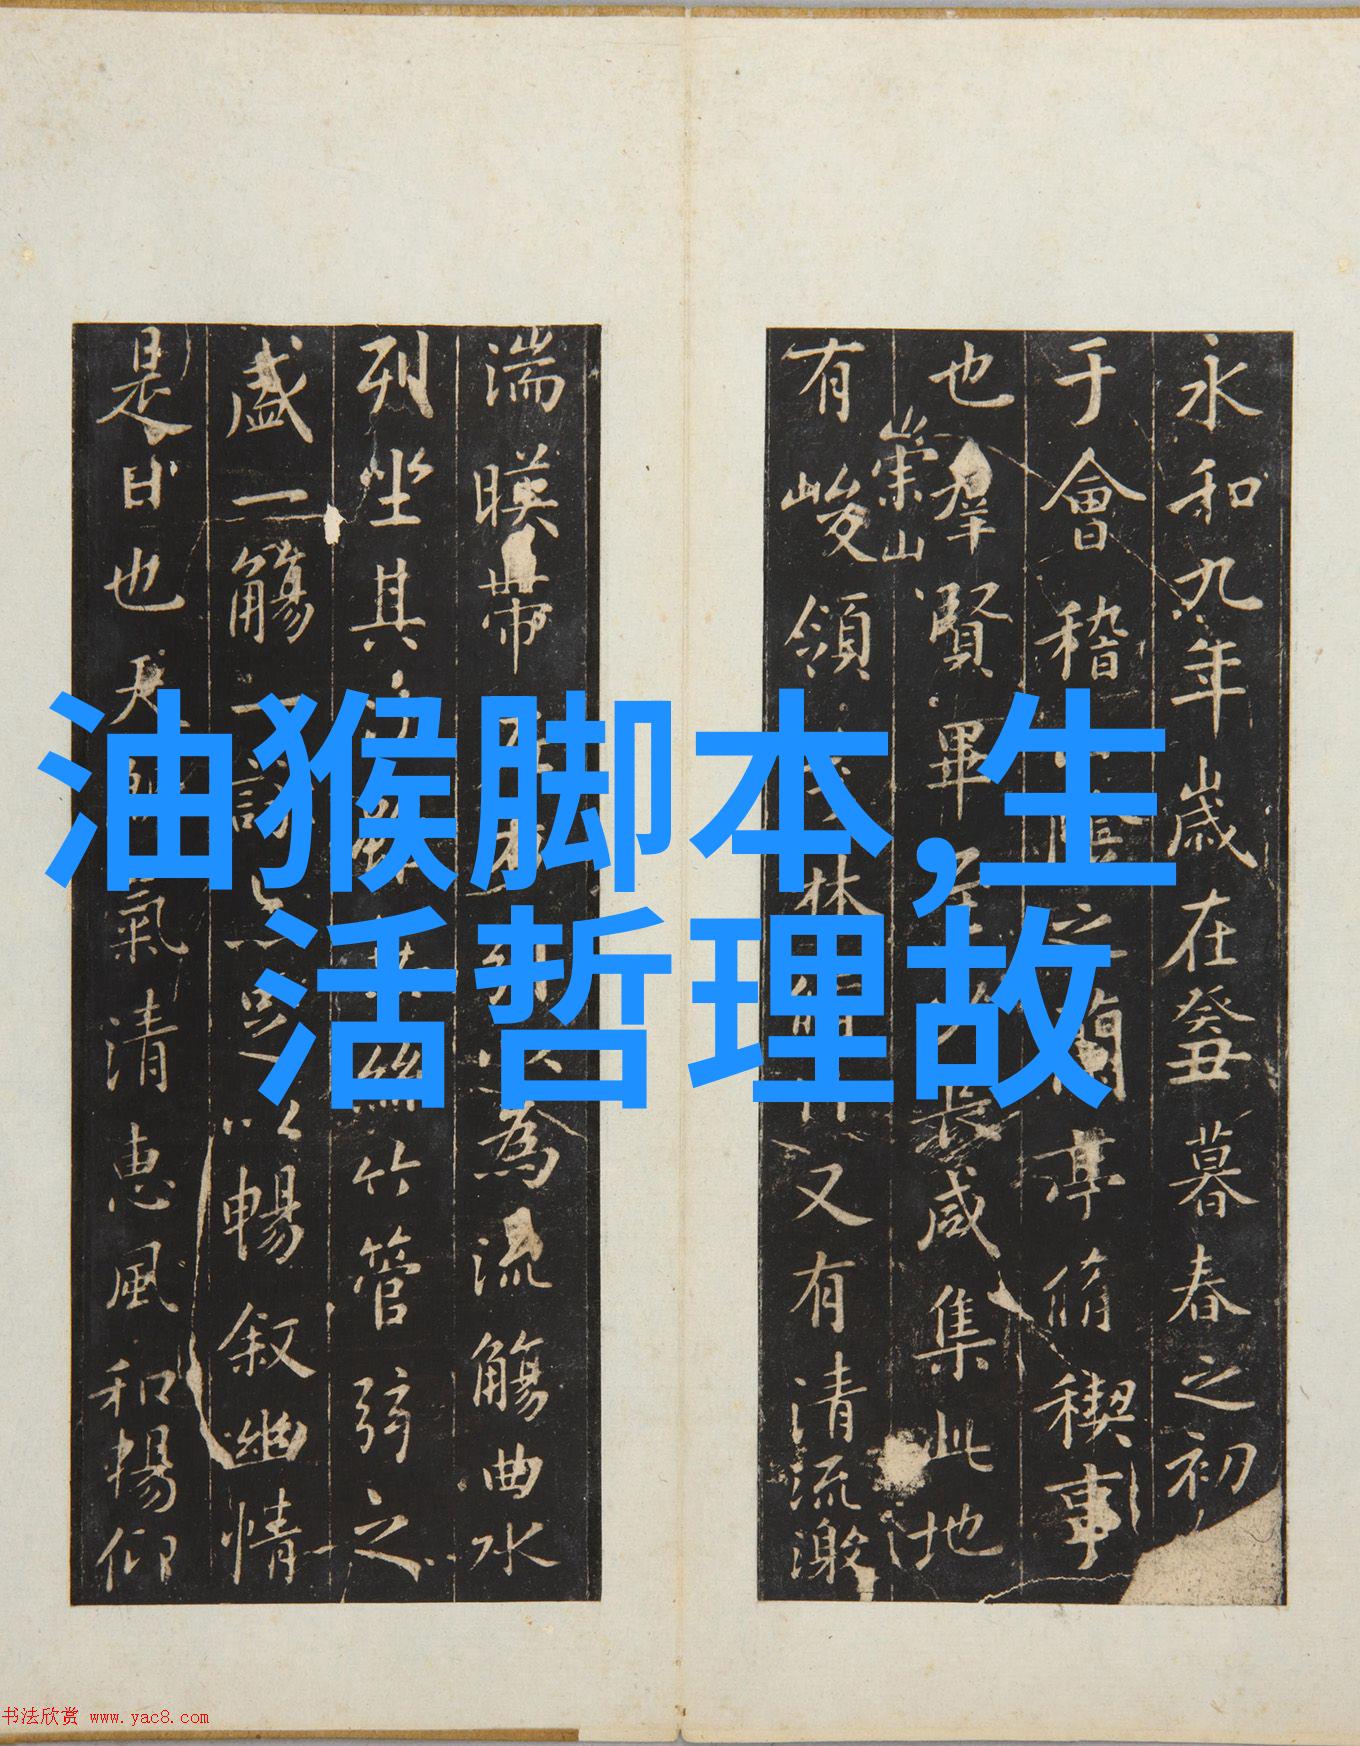 永和九年歲在癸丑暮春之初
于會稽山陰之蘭亭脩禊事
也羣賢畢至少長咸集此地
崇山
有峻領茂林脩竹又有清流激
湍暎帶左右引以為流觴曲水
列坐其次雖無絲竹管弦之
盛一觴一詠亦足以暢敘幽情
是日也天朗氣清惠風和暢仰
油猴脚本,生
活哲理故
书法欣赏 www.yac8.com